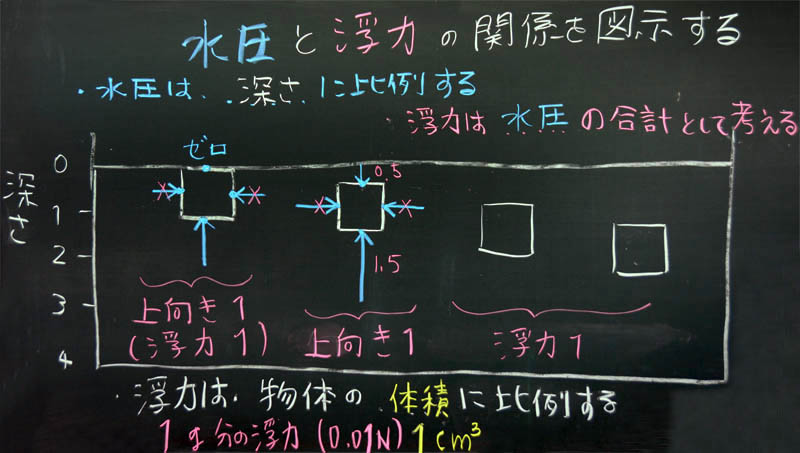 水圧と浮力の関係を図示する
・水圧は、深さに比例する
・浮力は水圧の合計として考える
深さ
0
1
2
3
4
ゼロ
0.5
1.5
上向き1
(浮力1)
上向き1
浮力1
・浮力は、物体の体積に比例する
1g分の浮力(0.01N) 1cm³